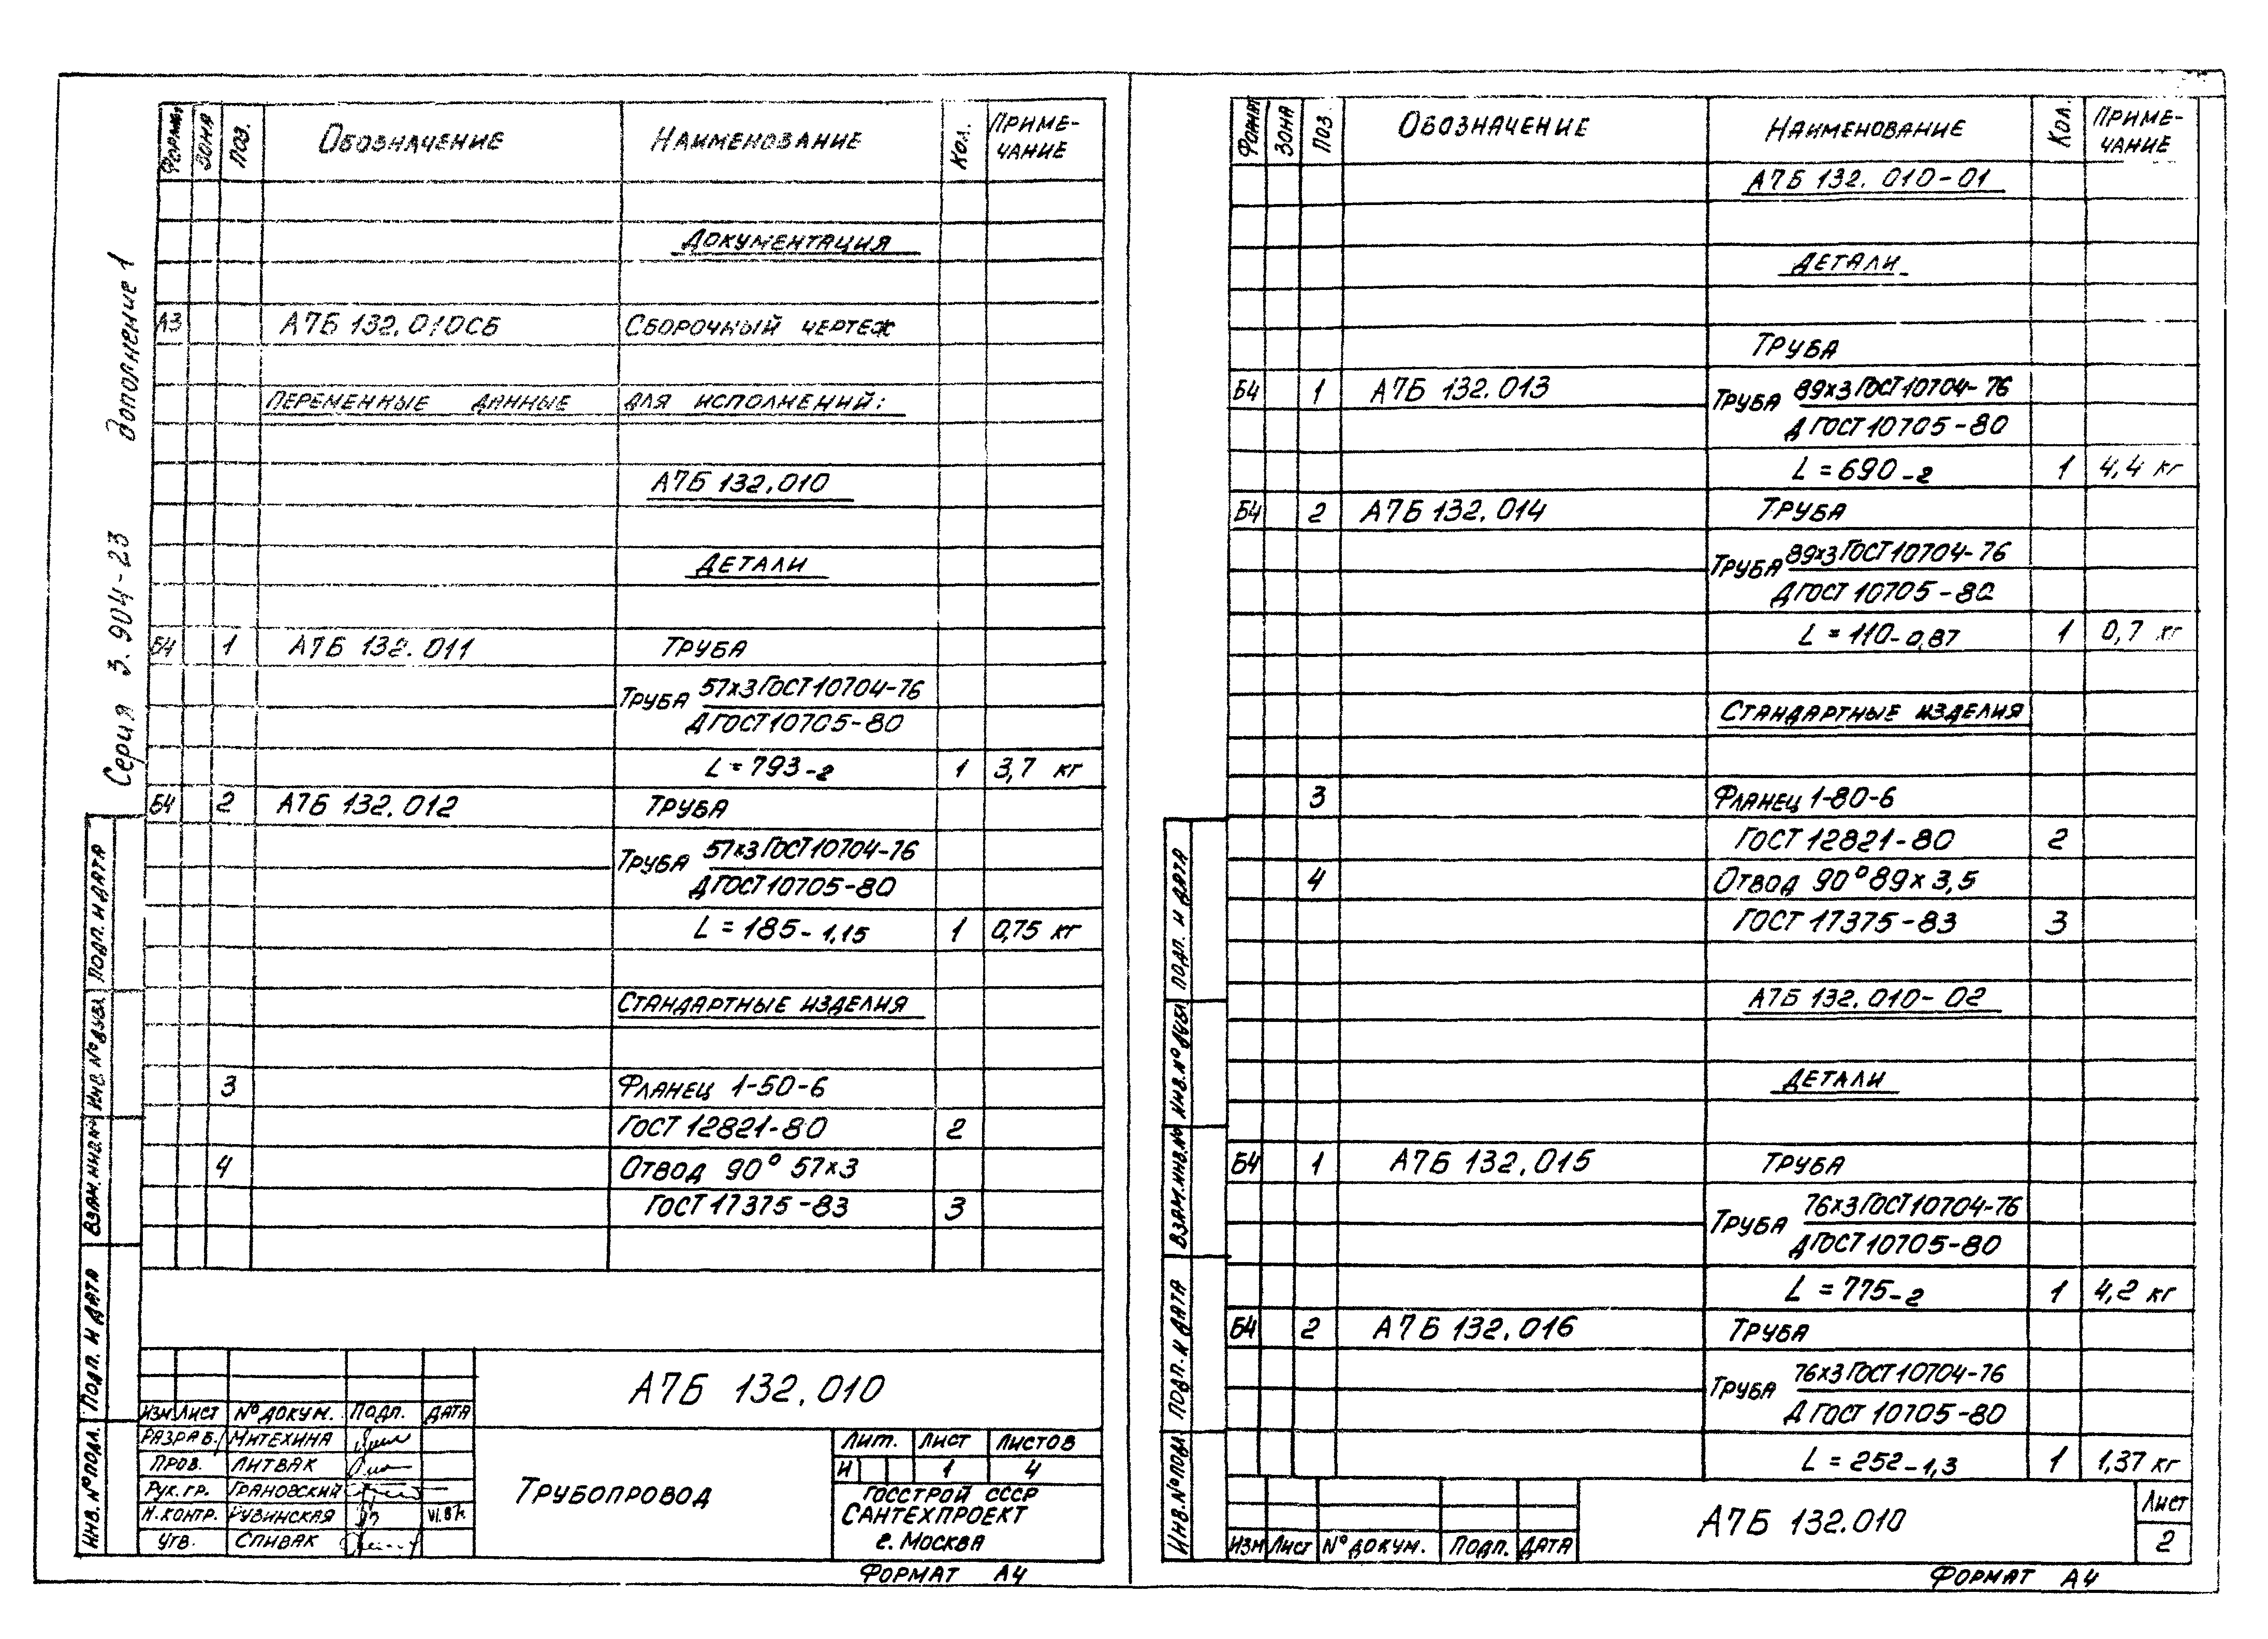 Серия 3.904-23 Дополнение 1
Формат Зона Поз. Обозначение Наименование Кол. Приме-
чание
Документация
А3 А7Б 132.010СБ Сборочный чертеж
Переменные данные для исполнений:
А7Б 132.010
Детали
Б4 1 А7Б 132.011 Труба
Труба 57х3 ГОСТ 10704-76
Д ГОСТ 10705-80
L=793-2 1 3,7 кг
Б4 2 А7Б 132.012 Труба
Труба 57х3 ГОСТ 10704-76
Д ГОСТ 10705-80
L=185-1,15 1 0,75 кг
Стандартные изделия
3 Фланец 1-50-6
ГОСТ 12821-80 2
4 Отвод 90° 57х3
ГОСТ 17375-83 3
Инв. № подл. Подп. и дата Взам. инв. № Инв. № дубл. Подп. и дата
А7Б 132.010
Изм Лист № докум. Подп. Дата
Разраб. Митехина
Пров. Литвак
Рук. гр. Грановский
Н. контр. Рувинская VI.87г.
Утв. Спивак
Трубопровод
Лит. Лист Листов
И 1 4
Госстрой СССР
Сантехпроект
г. Москва
Формат А4
Формат Зона Поз. Обозначение Наименование Кол. Приме-
чание
А7Б 132.010-01
Детали
Труба
Б4 1 А7Б 132.013 Труба 89х3 ГОСТ 10704-76
Д ГОСТ 10705-80
L=690-2 1 4,4 кг
Б4 2 А7Б 132.014 Труба
Труба 89х3 ГОСТ 10704-76
Д ГОСТ 10705-80
L=110-0,87 1 0,7 кг
Стандартные изделия
3 Фланец 1-80-6
ГОСТ 12821-80 2
4 Отвод 90° 89х3,5
ГОСТ 17375-83 3
А7Б 132.010-02
Детали
Б4 1 А7Б 132.015 Труба
Труба 76х3 ГОСТ 10704-76
Д ГОСТ 10705-80
L=775-2 1 4,2 кг
Б4 2 А7Б 132.016 Труба
Труба 76х3 ГОСТ 10704-76
Д ГОСТ 10705-80
L=252-1,3 1 1,37 кг
Инв. № подл. Подп. и дата Взам. инв. № Инв. № дубл. Подп. и дата
Изм Лист № докум. Подп. Дата
А7Б 132.010
Лист
2
Формат А4